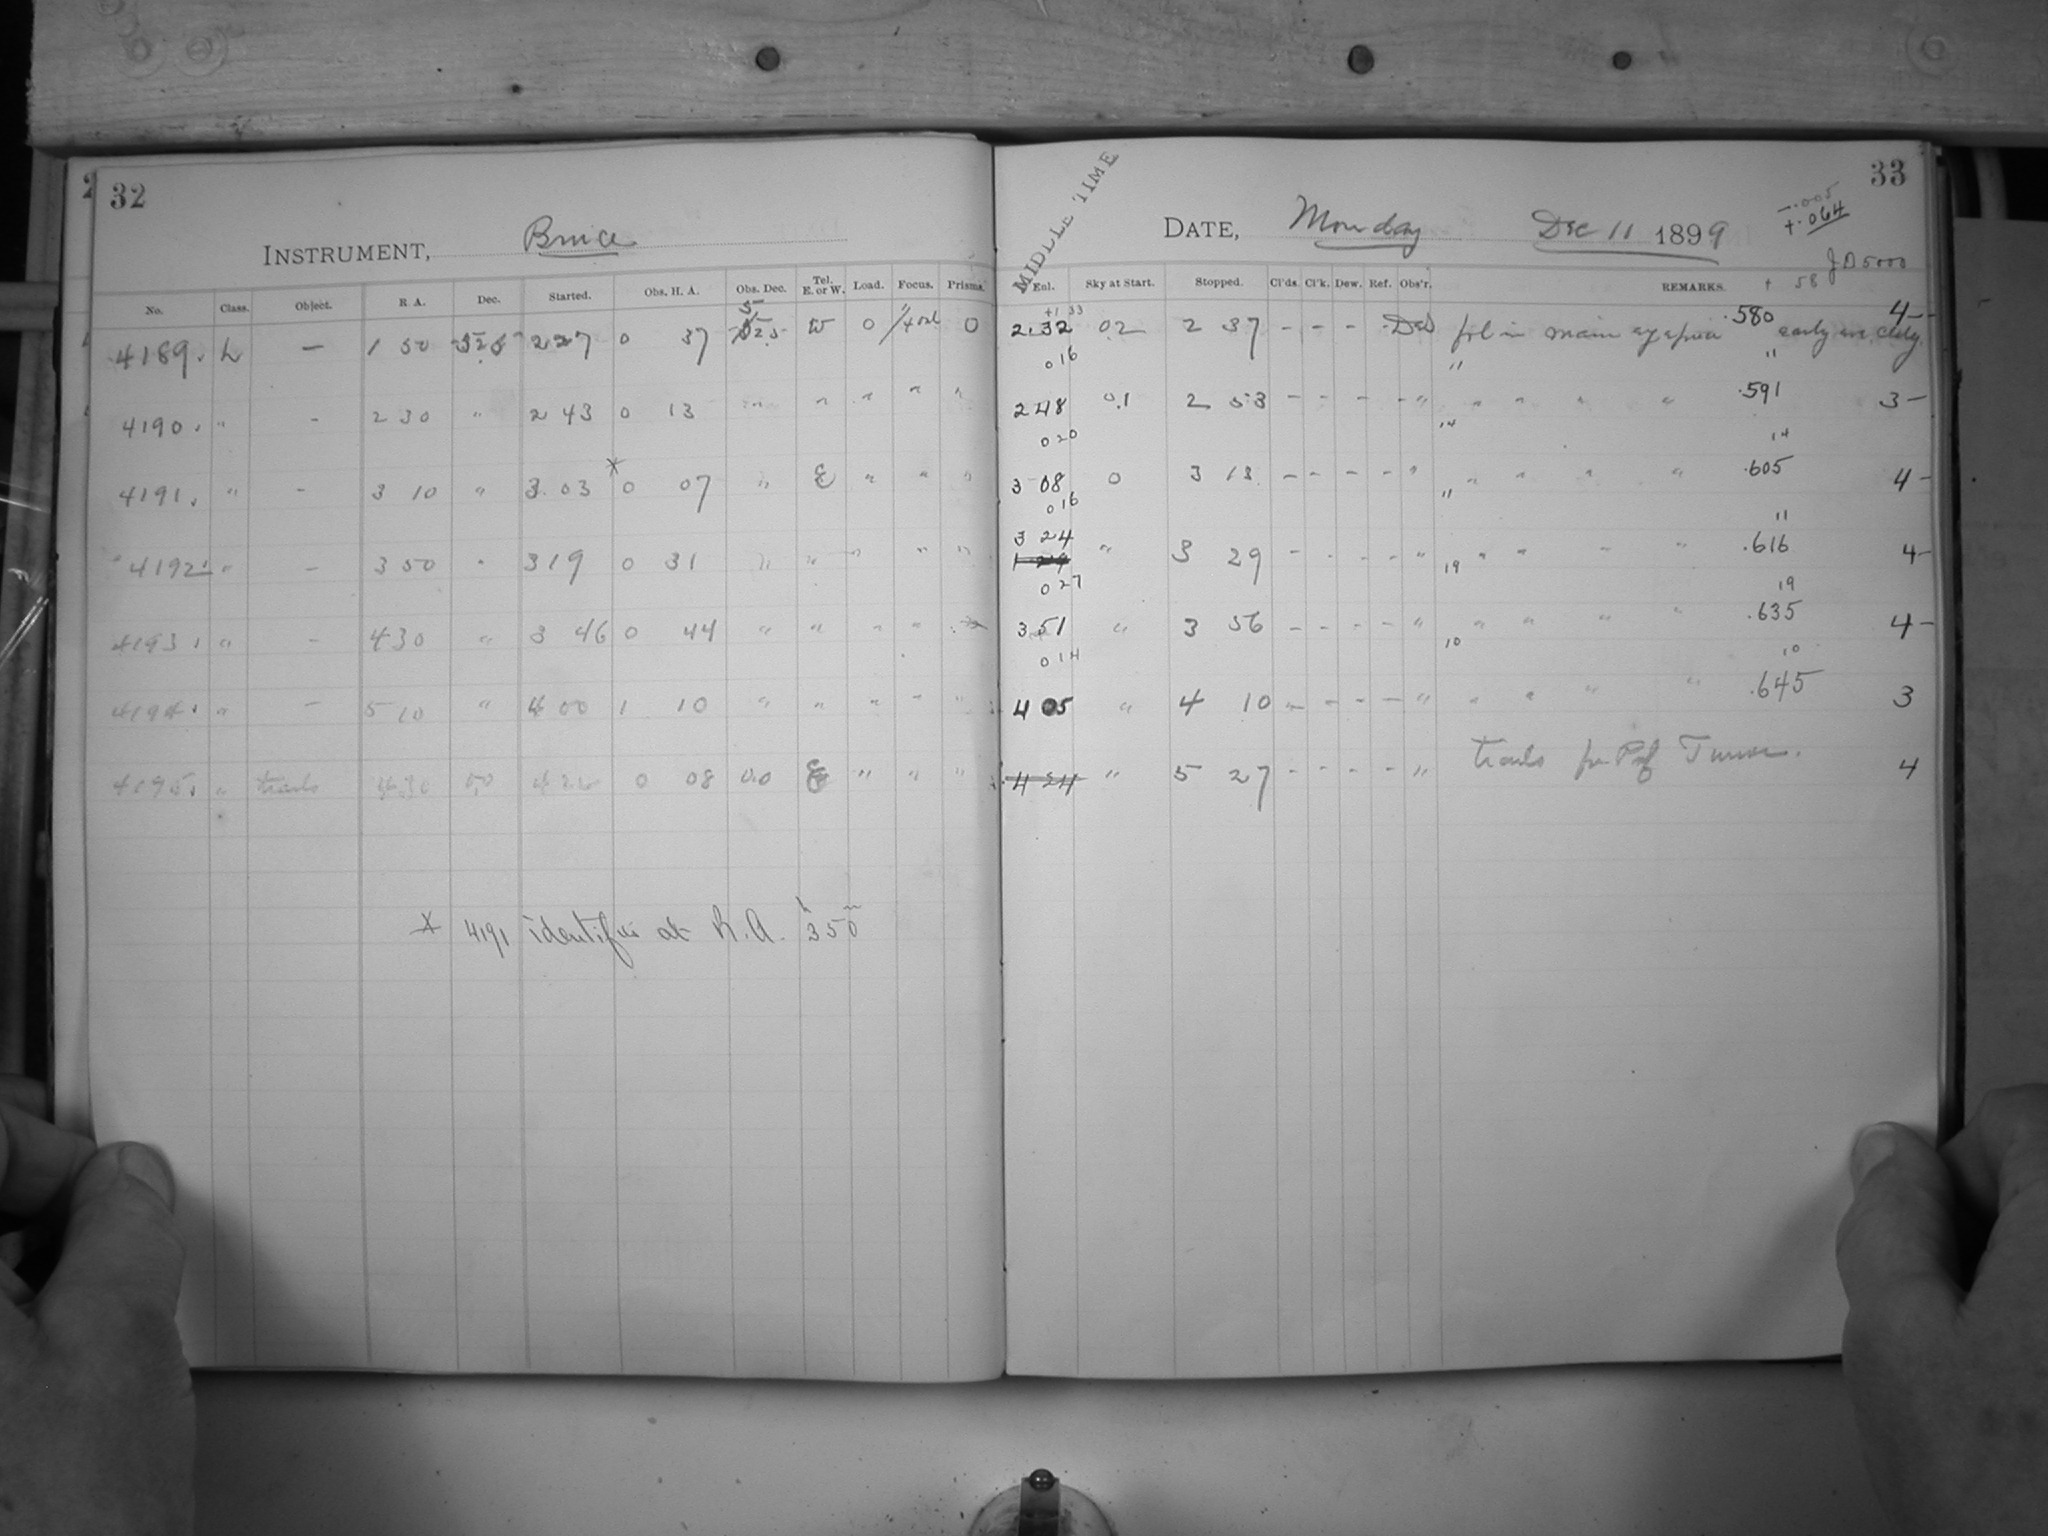 32
INSTRUMENT, Bruce
No. Class. Object. R A. Dec. Started. Obs. H. A. Obs. Dec. Tel. E. or W. Load. Focus. Prisms.
4189. L — 1 50 227 0 37 W 0 0
4190. " - 2 30 " 2 43 0 13 " " " " "
4191. " - 3 10 " 3.03 * 0 07 " E " " "
4192. " - 3 50 " 319 0 31 " " " " "
4193. " - 430 " 3 46 0 44 " " " "
4194. " - 5 10 " 4 00 1 10 " " " " "
4195. " trails 0 08 0.0 E " " "
* 4191 identifies at R.A. 3h 50m
33
MIDDLE TIME
DATE, Monday Dec 11 1899
-.005
+.064
JD 5000
+ 58
Enl. Sky at Start. Stopped. Cl'ds. Cl'k. Dew. Ref. Obs'r. REMARKS.
+1 33
2.32 02 2 37 - - - - in main .580 early 4-
0 16 " 11
2 48 0.1 2 53 - - - - " " " " " .591 3-
0 20 14 14
3 08 0 3 13 - - - - " " " " " .605 4-
0 16 11 11
3 24 " 3 29 - - - - " " " " " .616 4-
0 27 19 19
3 51 " 3 56 - - - - " " " " " .635 4-
0 14 10 10
4 05 " 4 10 - - - - " " " " " .645 3
4 24 " 5 27 - - - - " trails for Prof Turner. 4